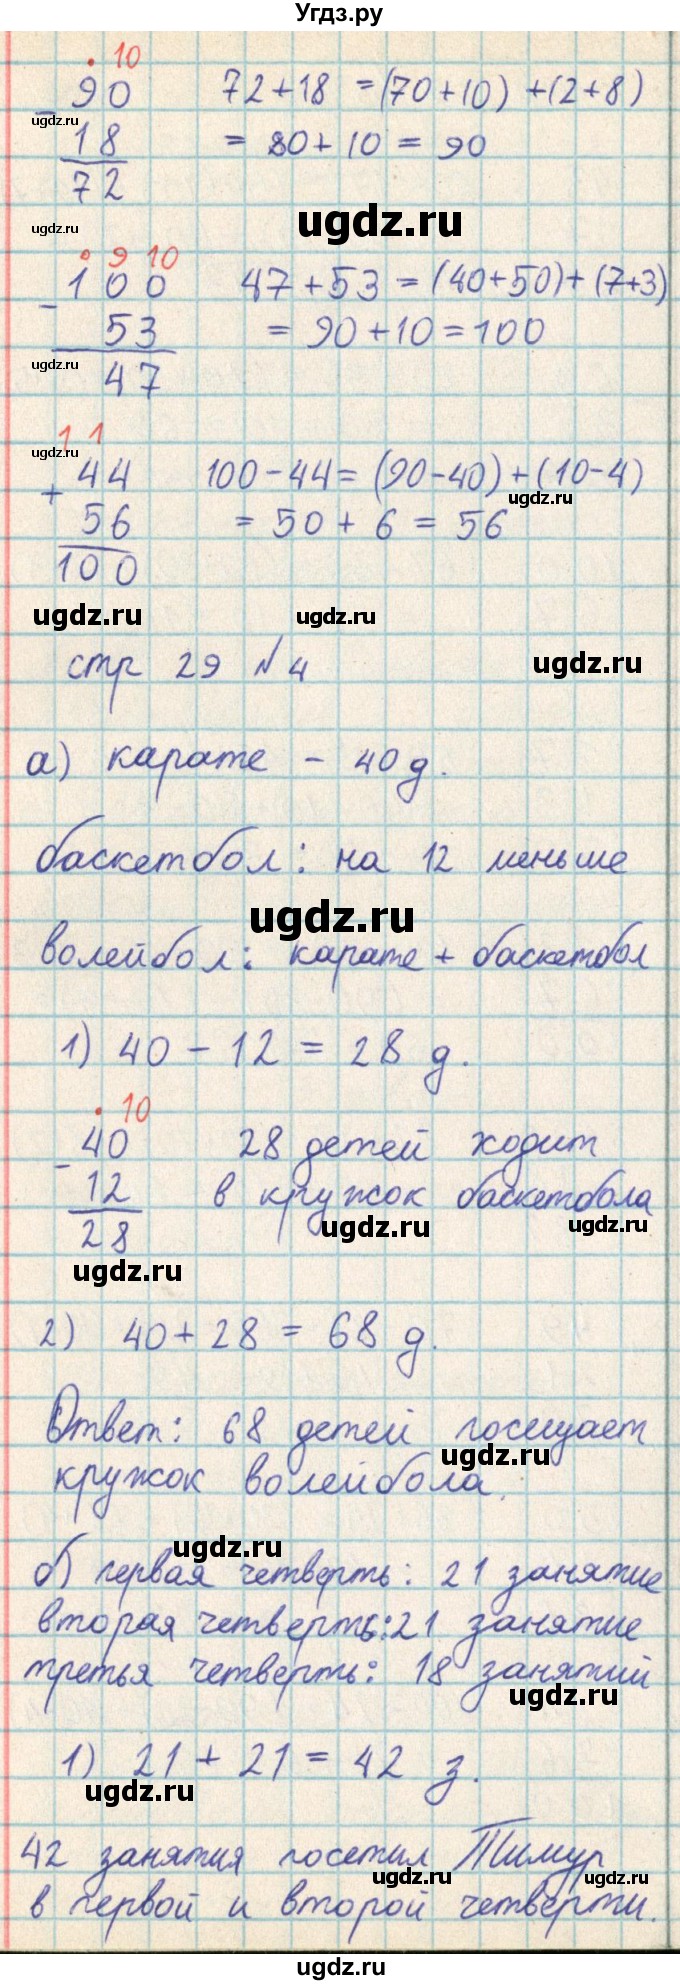 Угдз.ру
. 10
- 90 72+18 =(70+10) +(2+8)
ugdz.ru
18 = 80+10 = 90
72
ugdz.ru
ugdz.ru
. 9 10
- 100 47+53 = (40+50)+(7+3)
53 = 90+10=100
ugdz.ru
47
1 1
ugdz.ru
+ 44 100-44= (90-40)+(10-4)
ugdz.ru
56 = 50 + 6 = 56
100
ugdz.ru
ugdz.ru
стр 29 №4
ugdz.ru
а) карате - 40 д.
баскетбол: на 12 меньше
ugdz.ru
волейбол: карате + баскетбол
1) 40 - 12 = 28 д.
. 10
- 40 28 детей ходит
12 в кружок баскетбола
ugdz.ru
ugdz.ru
28
ugdz.ru
2) 40+28 = 68 д.
Ответ: 68 детей посещает
ugdz.ru
кружок волейбола.
ugdz.ru
б) первая четверть: 21 занятие
вторая четверть: 21 занятие
третья четверть: 18 занятий
ugdz.ru
1) 21 + 21 = 42 з.
ugdz.ru
42 занятия посетил Тимур
ugdz.ru
ugdz.ru
в первой и второй четверти.
ugdz.ru